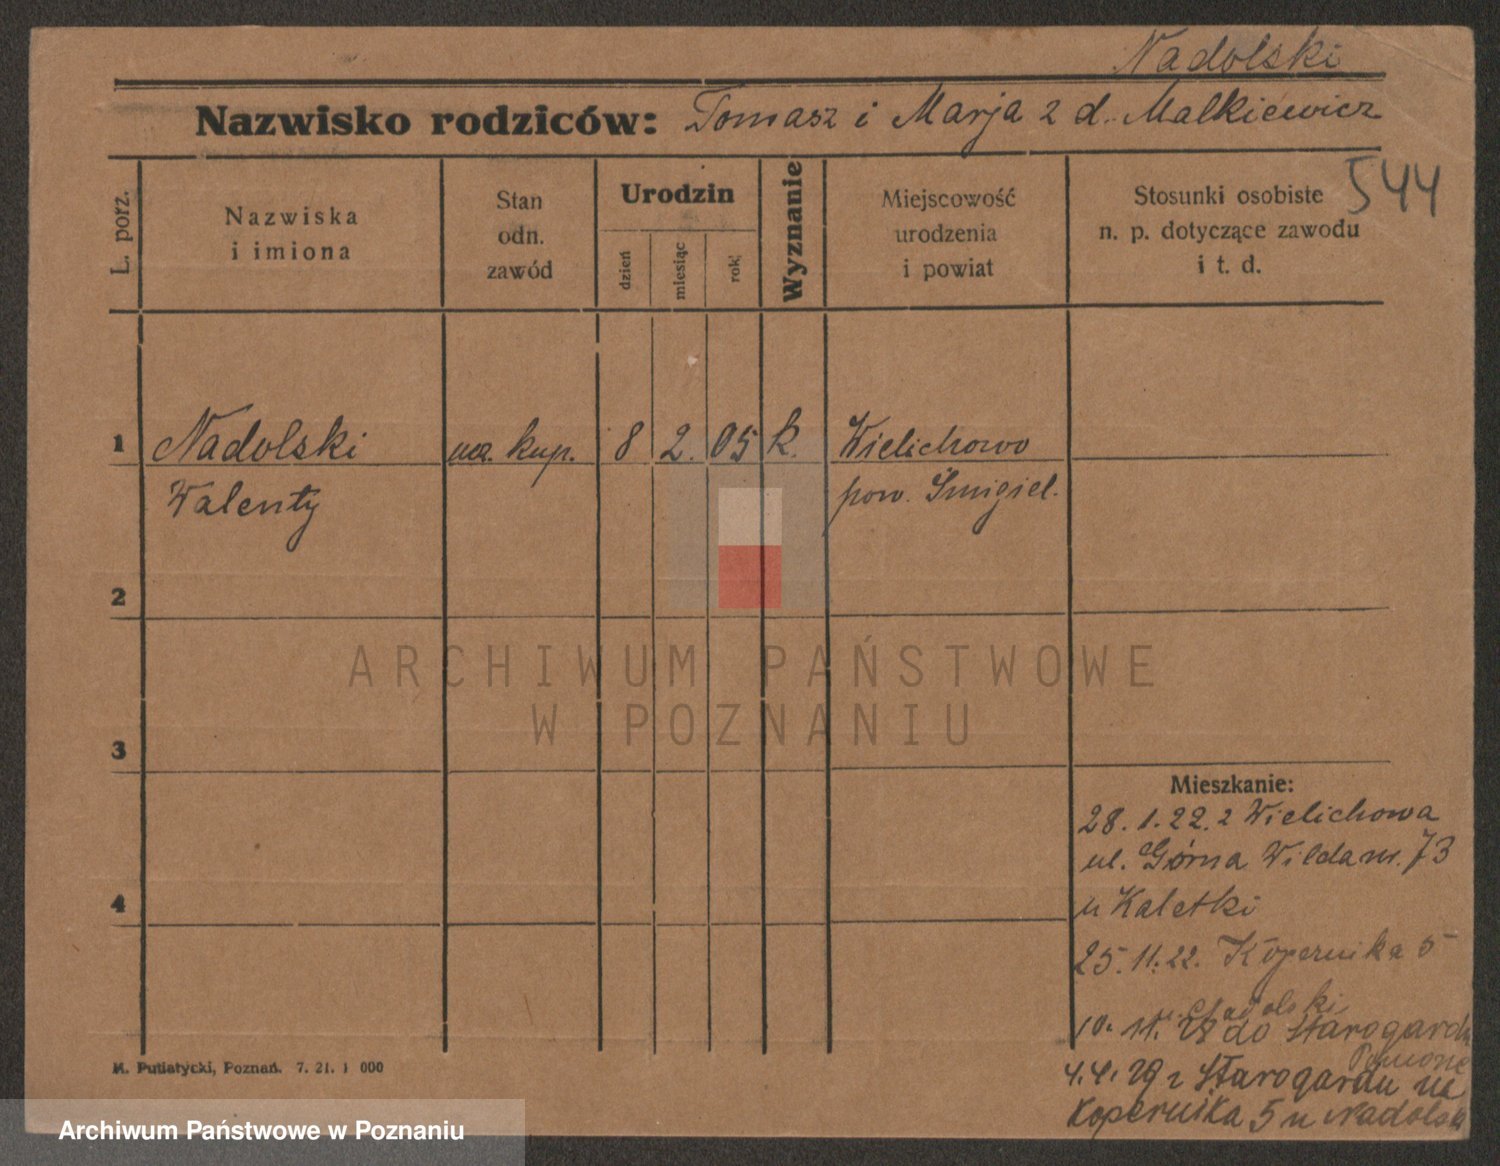 Nadolski
Nazwisko rodziców: Tomasz i Marja z d. Malkiewicz
544
L. porz.
Nazwiska
i imiona
Stan
odn.
zawód
Urodzin
dzień
miesiąc
rok
Wyznanie
Miejscowość
urodzenia
i powiat
Stosunki osobiste
n. p. dotyczące zawodu
i t. d.
1 Nadolski ucz. kup. 8 2. 05 k. Wielichowo
Walenty pow. Śmigiel.
2
3
4
ARCHIWUM PAŃSTWOWE
W POZNANIU
Mieszkanie:
28. 1. 22. z Wielichowa
ul. Górna Wilda nr. 73
u Kaletki
25. 11. 22. Kopernika 5
u. Nadolski
10. 11. 28 do Starogardu
4. 4. 29 z Starogardu na
Kopernika 5 u Nadolski
M. Putiatycki, Poznań. 7. 21. 1 000
Archiwum Państwowe w Poznaniu